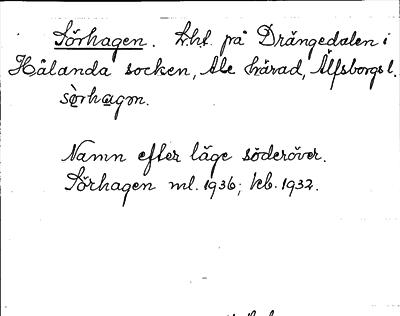 Sörhagen. Lht. på Drängedalen i
Hålanda socken, Ale härad, Älfsborgs l.
sö̀rhagọn.
Namn efter läge söderöver.
Sörhagen ml. 1936; kb. 1932.